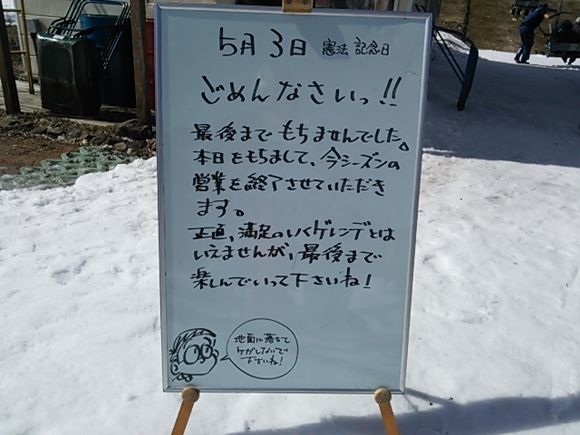 5月3日 憲法記念日
ごめんなさいっ!!
最後までもちませんでした。
本日をもちまして、今シーズンの
営業を終了させていただき
ます。
正直、満足のいくゲレンデとは
いえませんが、最後まで
楽しんでいって下さいね!
地面に落ちて
ケガしないで
下さいね!